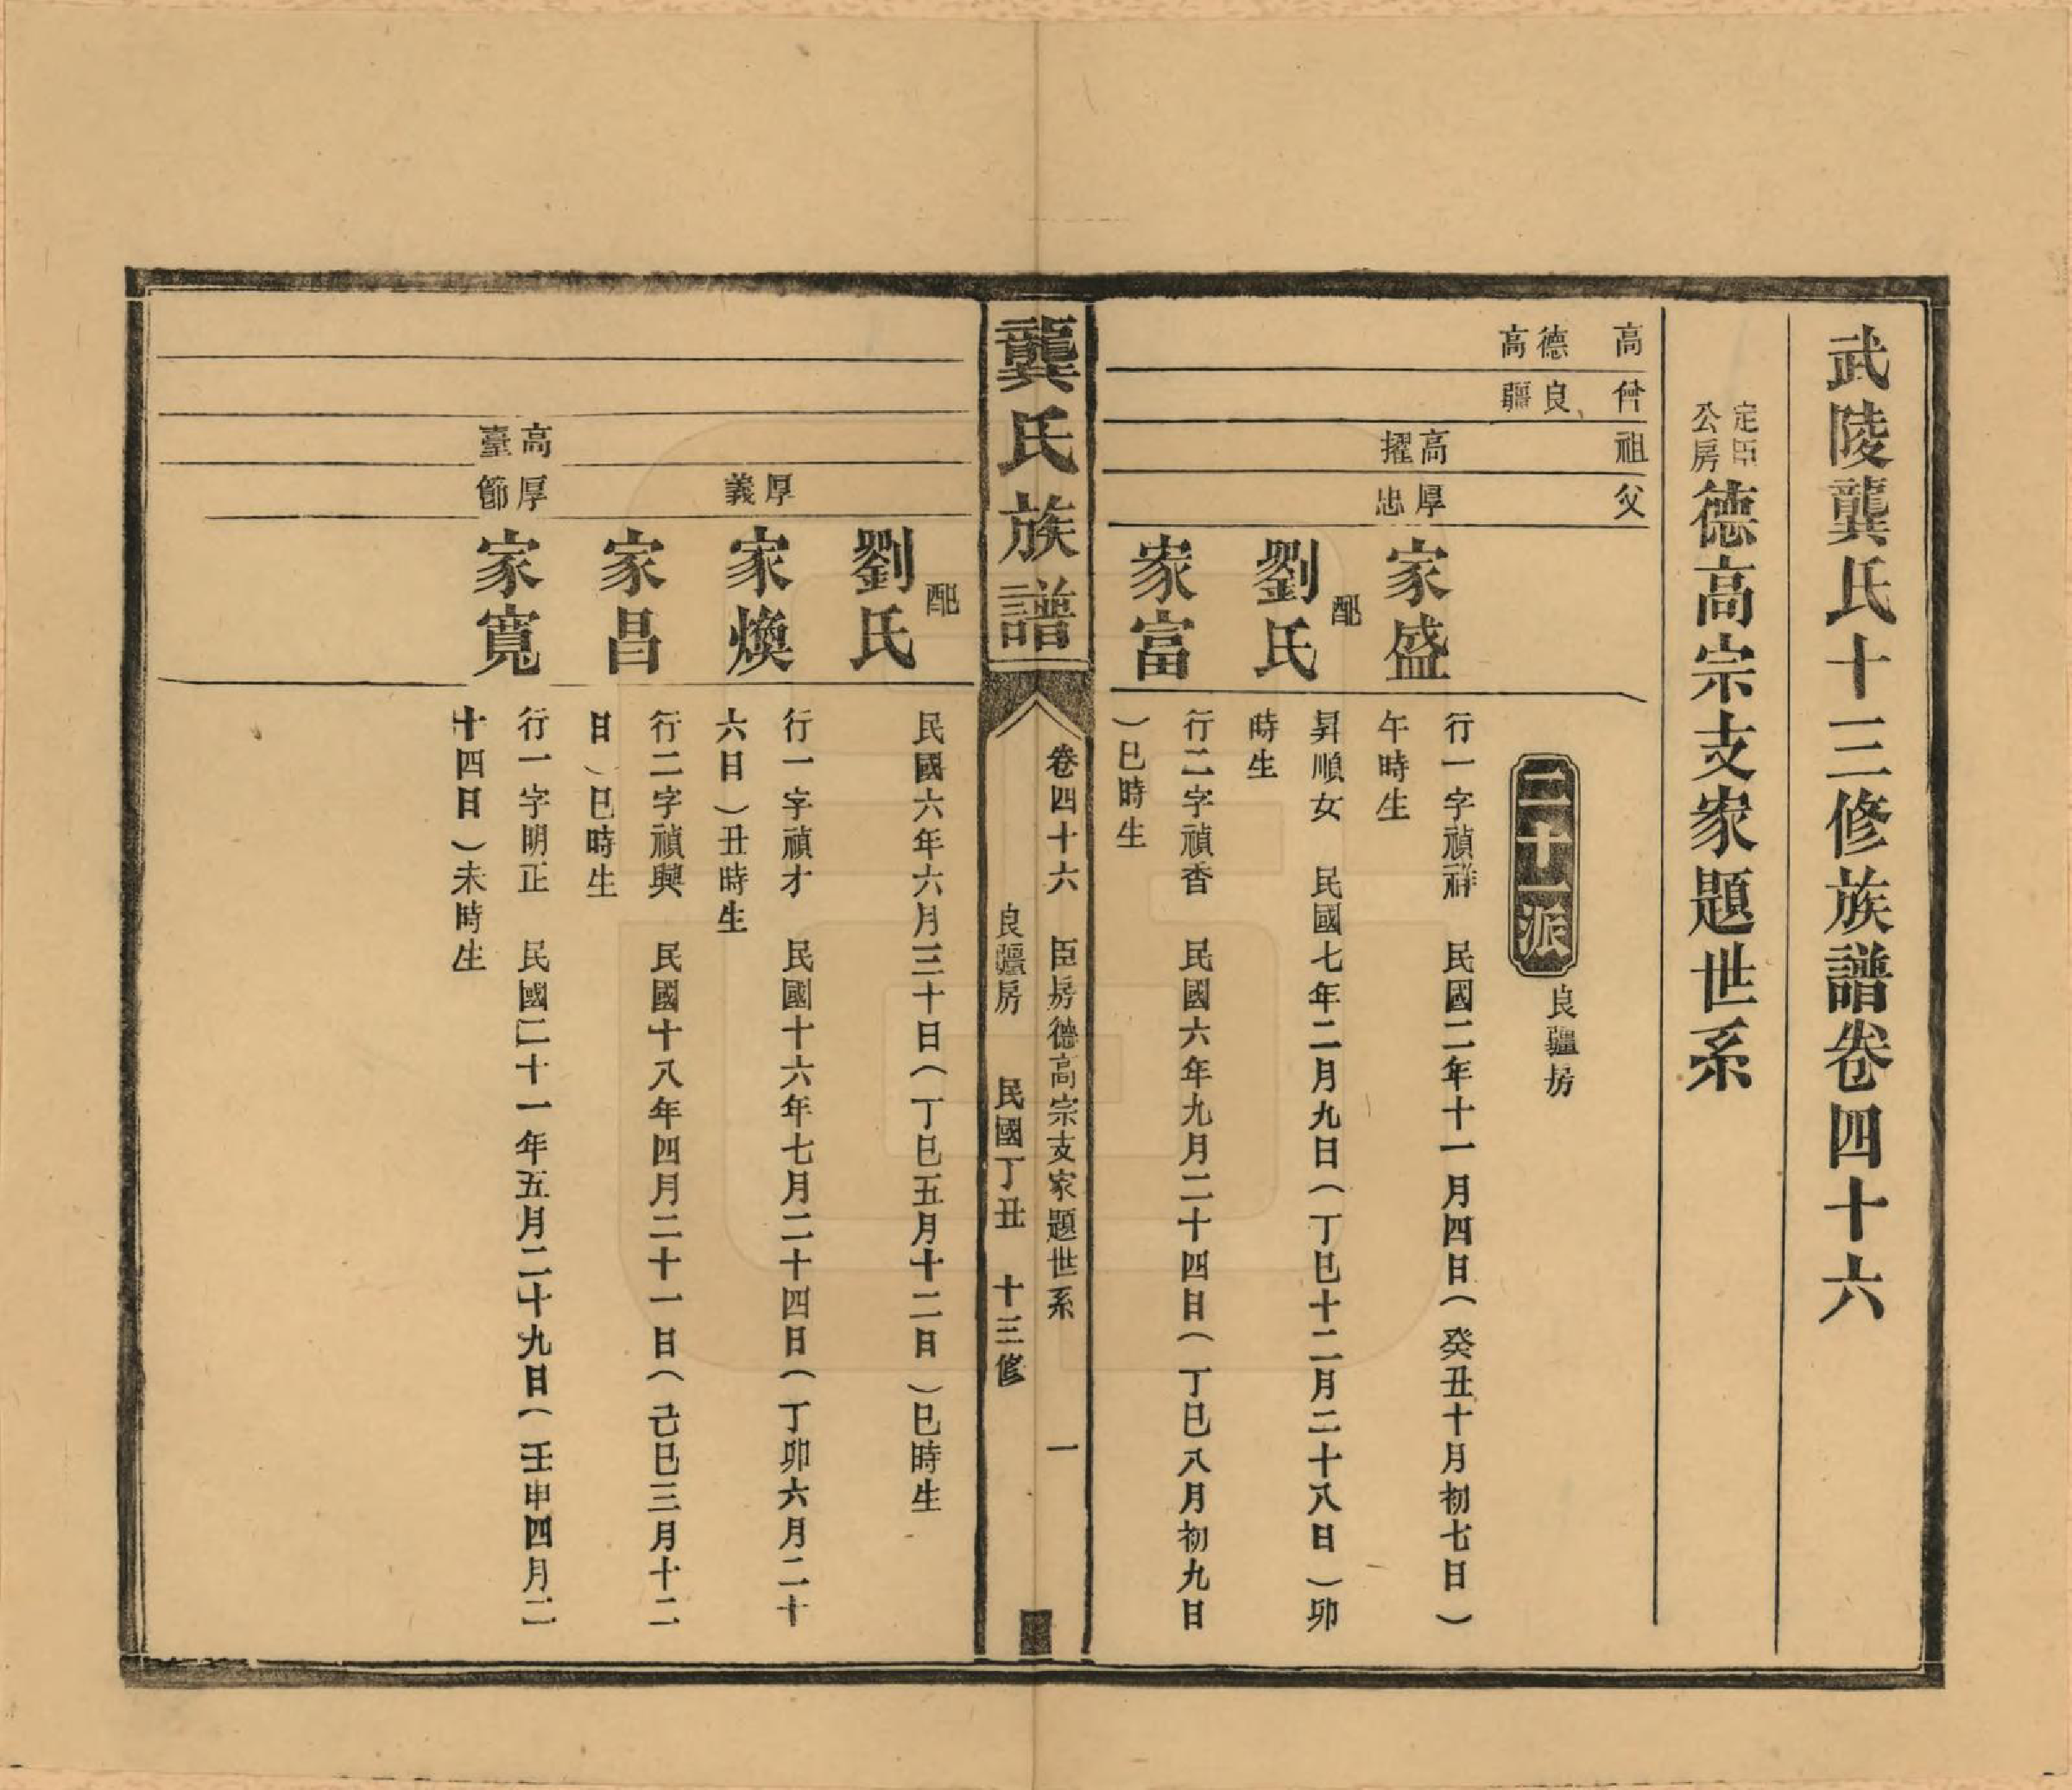 武陵龔氏十三修族譜卷四十六
定臣公房德高宗支家題世系
高
曾
祖
父
德高
良疆
二十一派
良疆房
高擢
厚忠
家盛
行一字禎祥　民國二年十一月四日(癸丑十月初七日)
午時生
配
劉氏
昇順女　民國七年二月九日(丁巳十二月二十八日)卯
時生
家富
行二字禎香　民國六年九月二十四日(丁巳八月初九日
)巳時生
龔氏族譜
卷四十六　臣房德高宗支家題世系　一
良疆房　民國丁丑　十三修
配
劉氏
民國六年六月三十日(丁巳五月十二日)巳時生
厚義
家煥
行一字禎才　民國十六年七月二十四日(丁卯六月二十
六日)丑時生
家昌
行二字禎興　民國十八年四月二十一日(己巳三月十二
日)巳時生
高臺
厚節
家寬
行一字明正　民國二十一年五月二十九日(壬申四月二
十四日)未時生